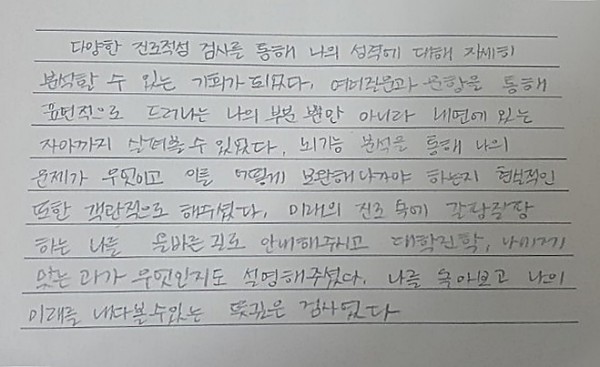 다양한 진로적성 검사를 통해 나의 성격에 대해 자세히
분석할 수 있는 기회가 되었다. 여러질문과 문항을 통해
표면적으로 드러나는 나의 부분 뿐만 아니라 내면에 있는
자아까지 살펴볼 수 있었다. 뇌기능 분석을 통해 나의
문제가 무엇이고 이를 어떻게 보완해나가야 하는지 현실적인
또한 객관적으로 해주셨다. 미래의 진로 속에 갈팡질팡
하는 나를 올바른 길로 안내해주시고 대학진학, 나에게
맞는 과가 무엇인지도 설명해주셨다. 나를 돌아보고 나의
미래를 내다볼수있는 뜻깊은 검사였다